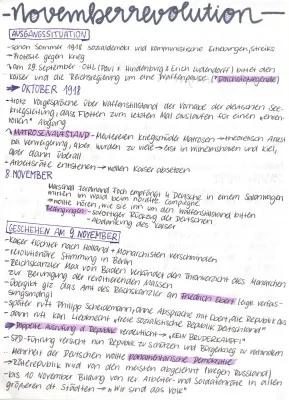 -novemberrevolution-
AUSGANGSSITUATION
- schon Sommer 1918 sozialdemokr. und kommunistische Erhebungen, Streiks
- Proteste gegen Krieg
- am 29. September: OHL (Paul v. Hindenburg & Erich Ludendorff) bittet den
Kaiser und die Reichsregierung um eine Waffenpause (*Dolchstoßlegende
→ OKTOBER 1918
- trotz Vorgespräche über Waffenstillstand der Vorhabe der deutschen See-
kriegsleitung, dass Flotten zum letzten Mal auslaufen für einen „ehren-
vollen" Abgang
↳ MATROSENAUFSTAND - Meutereien kriegsmüde Matrosen → theoretisch Arrest
bei Verweigerung, aber wurden zu viele → erst in Wilhelmshaven und Kiel,
aber dann überall
- Arbeiterräte entstehen → wollen Kaiser absetzen
8. NOVEMBER
Marschall Ferdinand Foch empfängt 4 Deutsche in einem Salonwagen
mitten im Wald beim Norditte Compiègne
→ wollte hören, wie sie ihn um den Waffenstillstand bitten
Bedingungen: - sofortiger Rückzug der Deutschen
- Abdankung des Kaiser
GESCHEHEN AM 9. NOVEMBER
- Kaiser flüchtet nach Holland & Monarchisten verschwinden
- revolutionäre Stimmung in Berlin
- Reichskanzler Max von Baden verkündet den Thronverzicht des Monarchen
zur Beruhigung der revoltierenden Massen
- übergibt giz. das Amt des Reichskanzler an Friedrich Ebert (legt verfas-
sungswidrig)
- später ruft Philipp Scheidemann, ohne Absprache mit Ebert, die Republik aus
- dann ruft Karl Liebknecht „freie sozialistische Republik Deutschland"
→ Doppelte Ausrufung d. Republik verdeutlicht → „KEIN BRUDERKAMPF!"
- SPD-Führung versucht nun Republik zu schützen und Bürgerkrieg zu verhindern
- Mehrheit der Deutschen wollte parlamentarische Demokratie
→ Räterepublik wird von den meisten abgelehnt (wegen Russland)
- bis 10. November Bildung von rev. Arbeiter- und Soldatenräte in allen
größeren dt. Städten → „Wir sind das Volk"